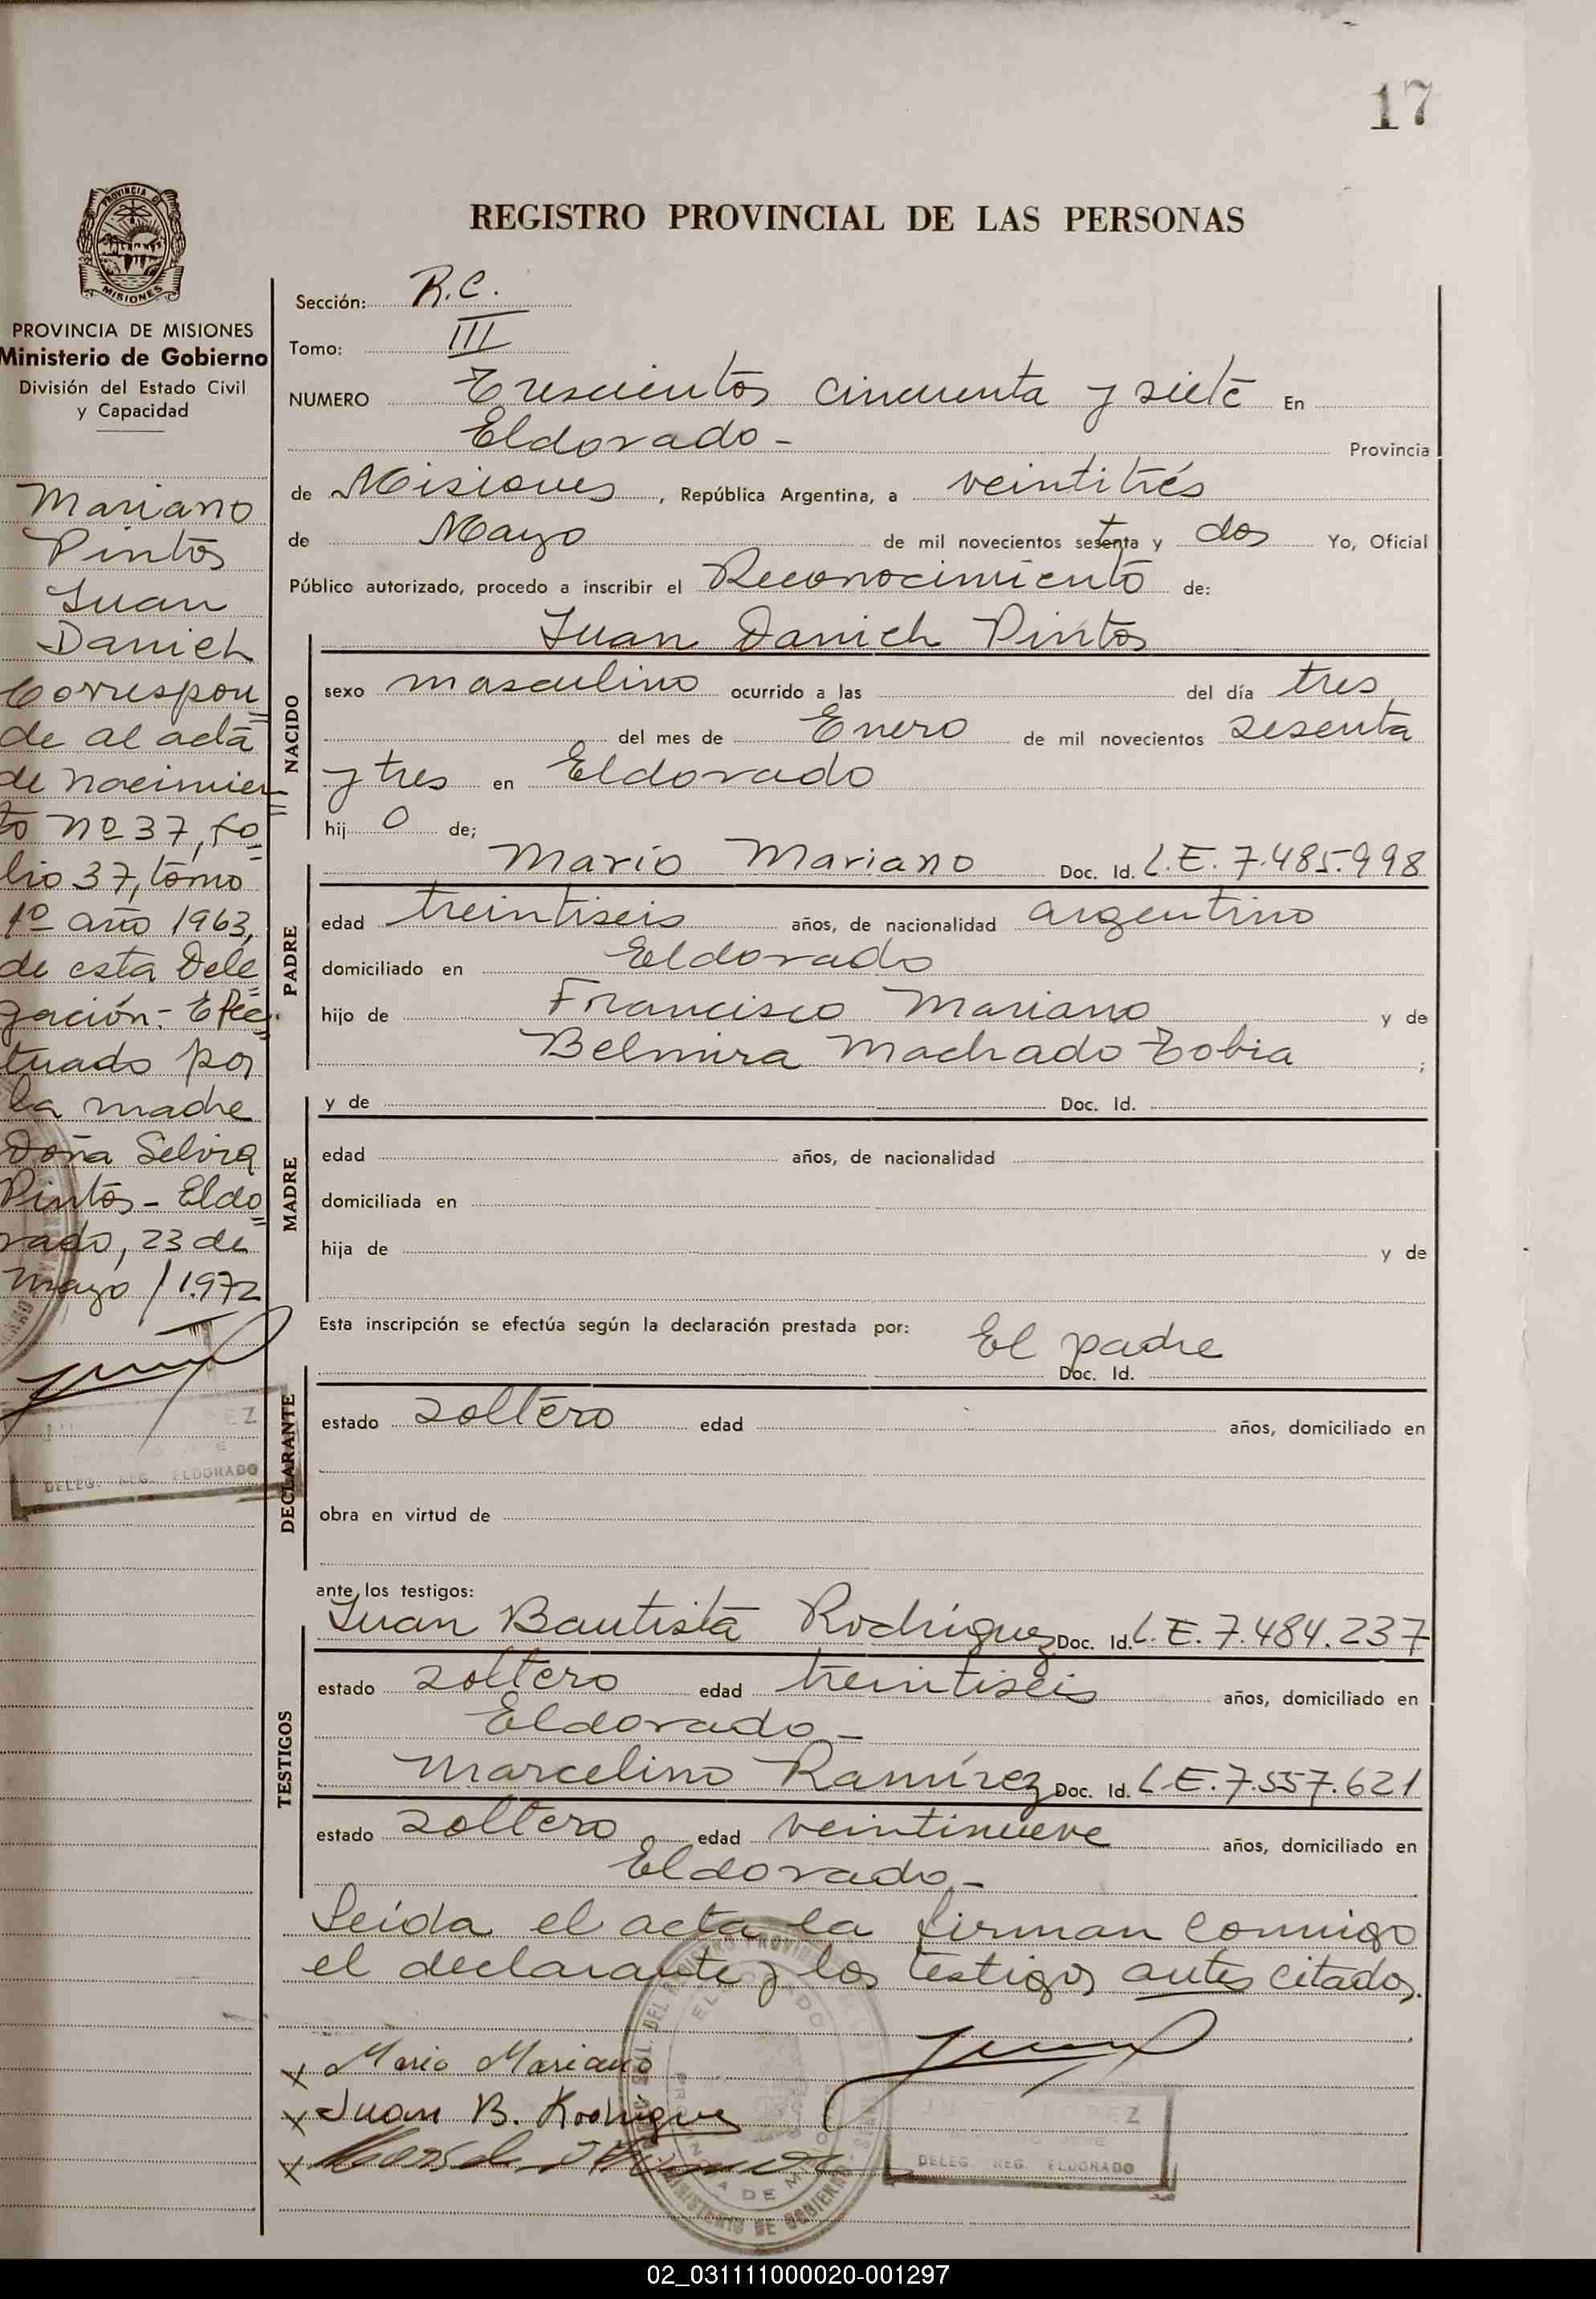 17
PROVINCIA DE
MISIONES
PROVINCIA DE MISIONES
Ministerio de Gobierno
División del Estado Civil
y Capacidad
Mariano
Pintos
Juan
Daniel
Correspon
de al acta
de nacimien
to nº 37, fo
lio 37, tomo
1º año 1963,
de esta Dele
gación.- Efec
tuado por
la madre
Doña Selvira
Pintos - Eldo
rado, 23 de
Mayo / 1.972
EZ
DELEG. REG. ELDORADO
REGISTRO PROVINCIAL DE LAS PERSONAS
Sección: R.C.
Tomo: III
NUMERO Trescientos cincuenta y siete En
Eldorado - Provincia
de Misiones, República Argentina, a veintitrés
de Mayo de mil novecientos setenta y dos Yo, Oficial
Público autorizado, procedo a inscribir el Reconocimiento de:
Juan Daniel Pintos
NACIDO
sexo masculino ocurrido a las del día tres
del mes de Enero de mil novecientos sesenta
y tres en Eldorado
hij o de;
PADRE
Mario Mariano Doc. Id. L.E. 7.485.998
edad treintiseis años, de nacionalidad argentino
domiciliado en Eldorado
hijo de Francisco Mariano y de
Belmira Machado Tobia ;
MADRE
y de Doc. Id.
edad años, de nacionalidad
domiciliada en
hija de y de
Esta inscripción se efectúa según la declaración prestada por: El padre
Doc. Id.
DECLARANTE
estado soltero edad años, domiciliado en
obra en virtud de
ante los testigos:
TESTIGOS
Juan Bautista Rodríguez Doc. Id. L.E. 7.484.237
estado soltero edad treintiseis años, domiciliado en
Eldorado -
Marcelino Ramírez Doc. Id. L.E. 7.557.621
estado soltero edad veintinueve años, domiciliado en
Eldorado -
Leída el acta la firman conmigo
el declarante y los testigos antes citados.
x Mario Mariano
x Juan B. Rodríguez
x
LOPEZ
DELEG. REG. ELDORADO
MINISTERIO DE GOBIERNO
02_031111000020-001297